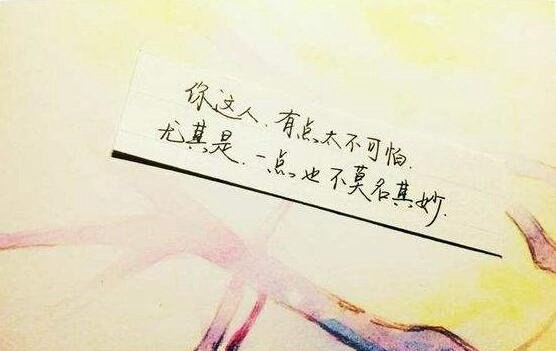 你这人、有点太不可怕.
尤其是.一点也不莫名其妙.